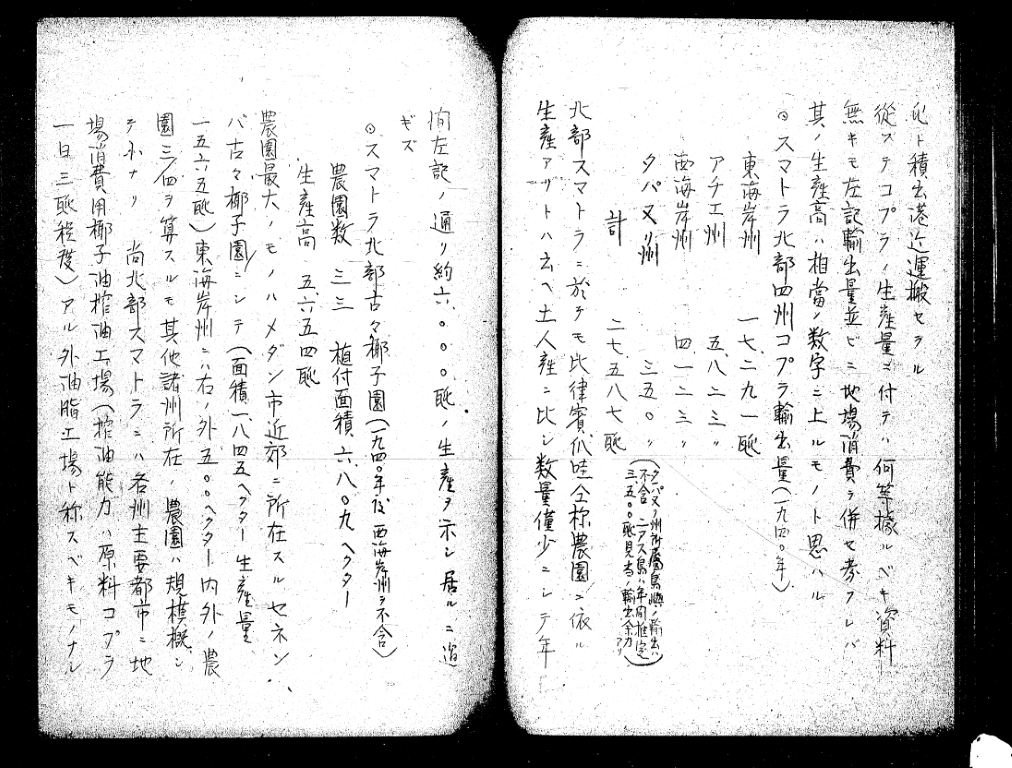 ト積出港迄運搬セラル
從ステコプラノ生産量ニ付テハ何等據ルベキ資料
無キモ左記輸出量並ビニ地場消費ヲ併セ考フレバ
其ノ生産高ハ相當ノ数字ニ上ルモノト思ハル
◎スマトラ北部四州コプラ輸出量(一九四〇年)
東海岸州 一七、二九一瓲
アチエ州 五、八二三〃
西海岸州 四、一二三〃
タパヌリ州 三五〇〃(タパヌリ州所屬島嶼ノ輸出ハ
不含 ニアス島ハ年間推定
三五〇〇瓲見当ノ輸出余力
アリ)
計 二七五八七瓲
北部スマトラニ於テモ比律賓爪哇仝様農園ニ依ル
生産アリトハ云ヘ土人産ニ比シ数量僅少ニシテ年
間左記ノ通リ約六〇〇〇瓲ノ生産ヲ示シ居ルニ過
ギズ
◎スマトラ北部古々椰子園(一九四〇年度西海岸州ヲ不含)
農園数 三三 植付面積 六、八〇九ヘクター
生産高 五六五四瓲
農園最大ノモノハメダン市近郊ニ所在スルセネン
バ古々椰子園ニシテ(面積一八四五ヘクター生産量
一五六五瓲)東海岸州ニハ右ノ外五〇〇ヘクター内外ノ農
園三/四ヲ算スルモ其他諸州所在ノ農園ハ規模概シ
テ小ナリ 尚北部スマトラニハ各州主要都市ニ地
場消費用椰子油搾油工場(搾油能力ハ原料コプラ
一日三瓲程度)アル外油脂工場ト称スベキモノナシ